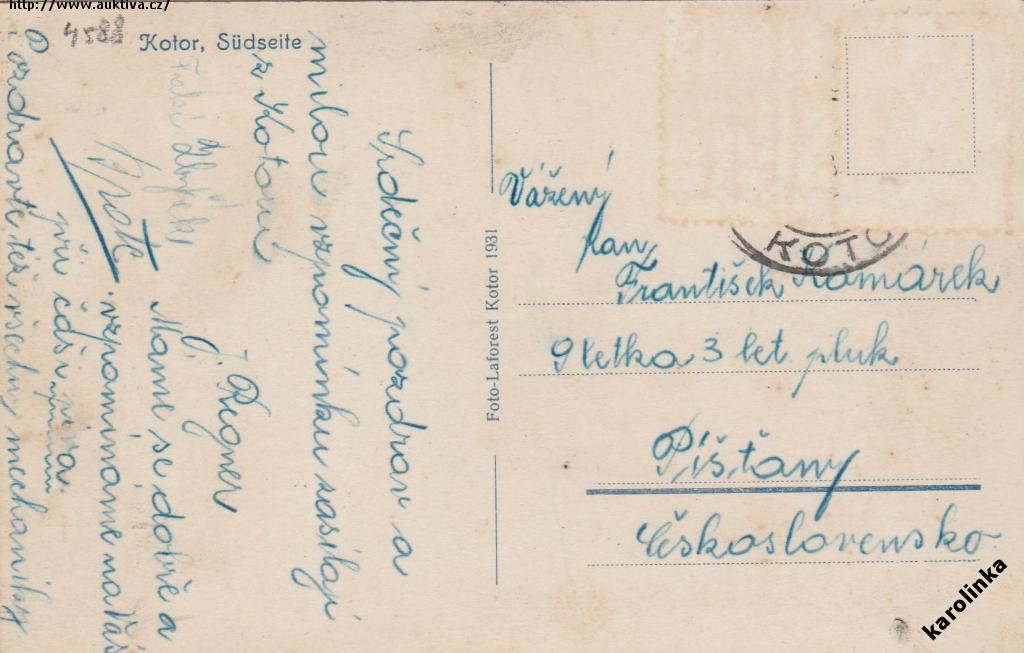 http://www.auktiva.cz/
4588
Kotor, Südseite
Srdečný pozdrav a
milou vzpomínku zasílají
z Kotoru
J. Rogner
Také Zbyněk
Máme se dobře a
vzpomínáme na Vás
při
Pozdravte též všechny mechaniky
Foto-Laforest Kotor 1931
KOTO
Vážený
pan
František Komárek
9 letka 3 let. pluk
Píšťany
Československo.
karolinka